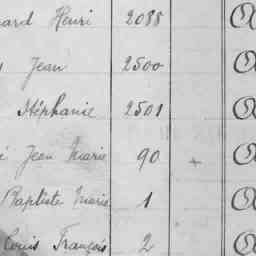 nard Henri 2088
Jean 2500
Stéphanie 2501
Jean Marie 90 +
Baptiste Marie 1
Louis François 2